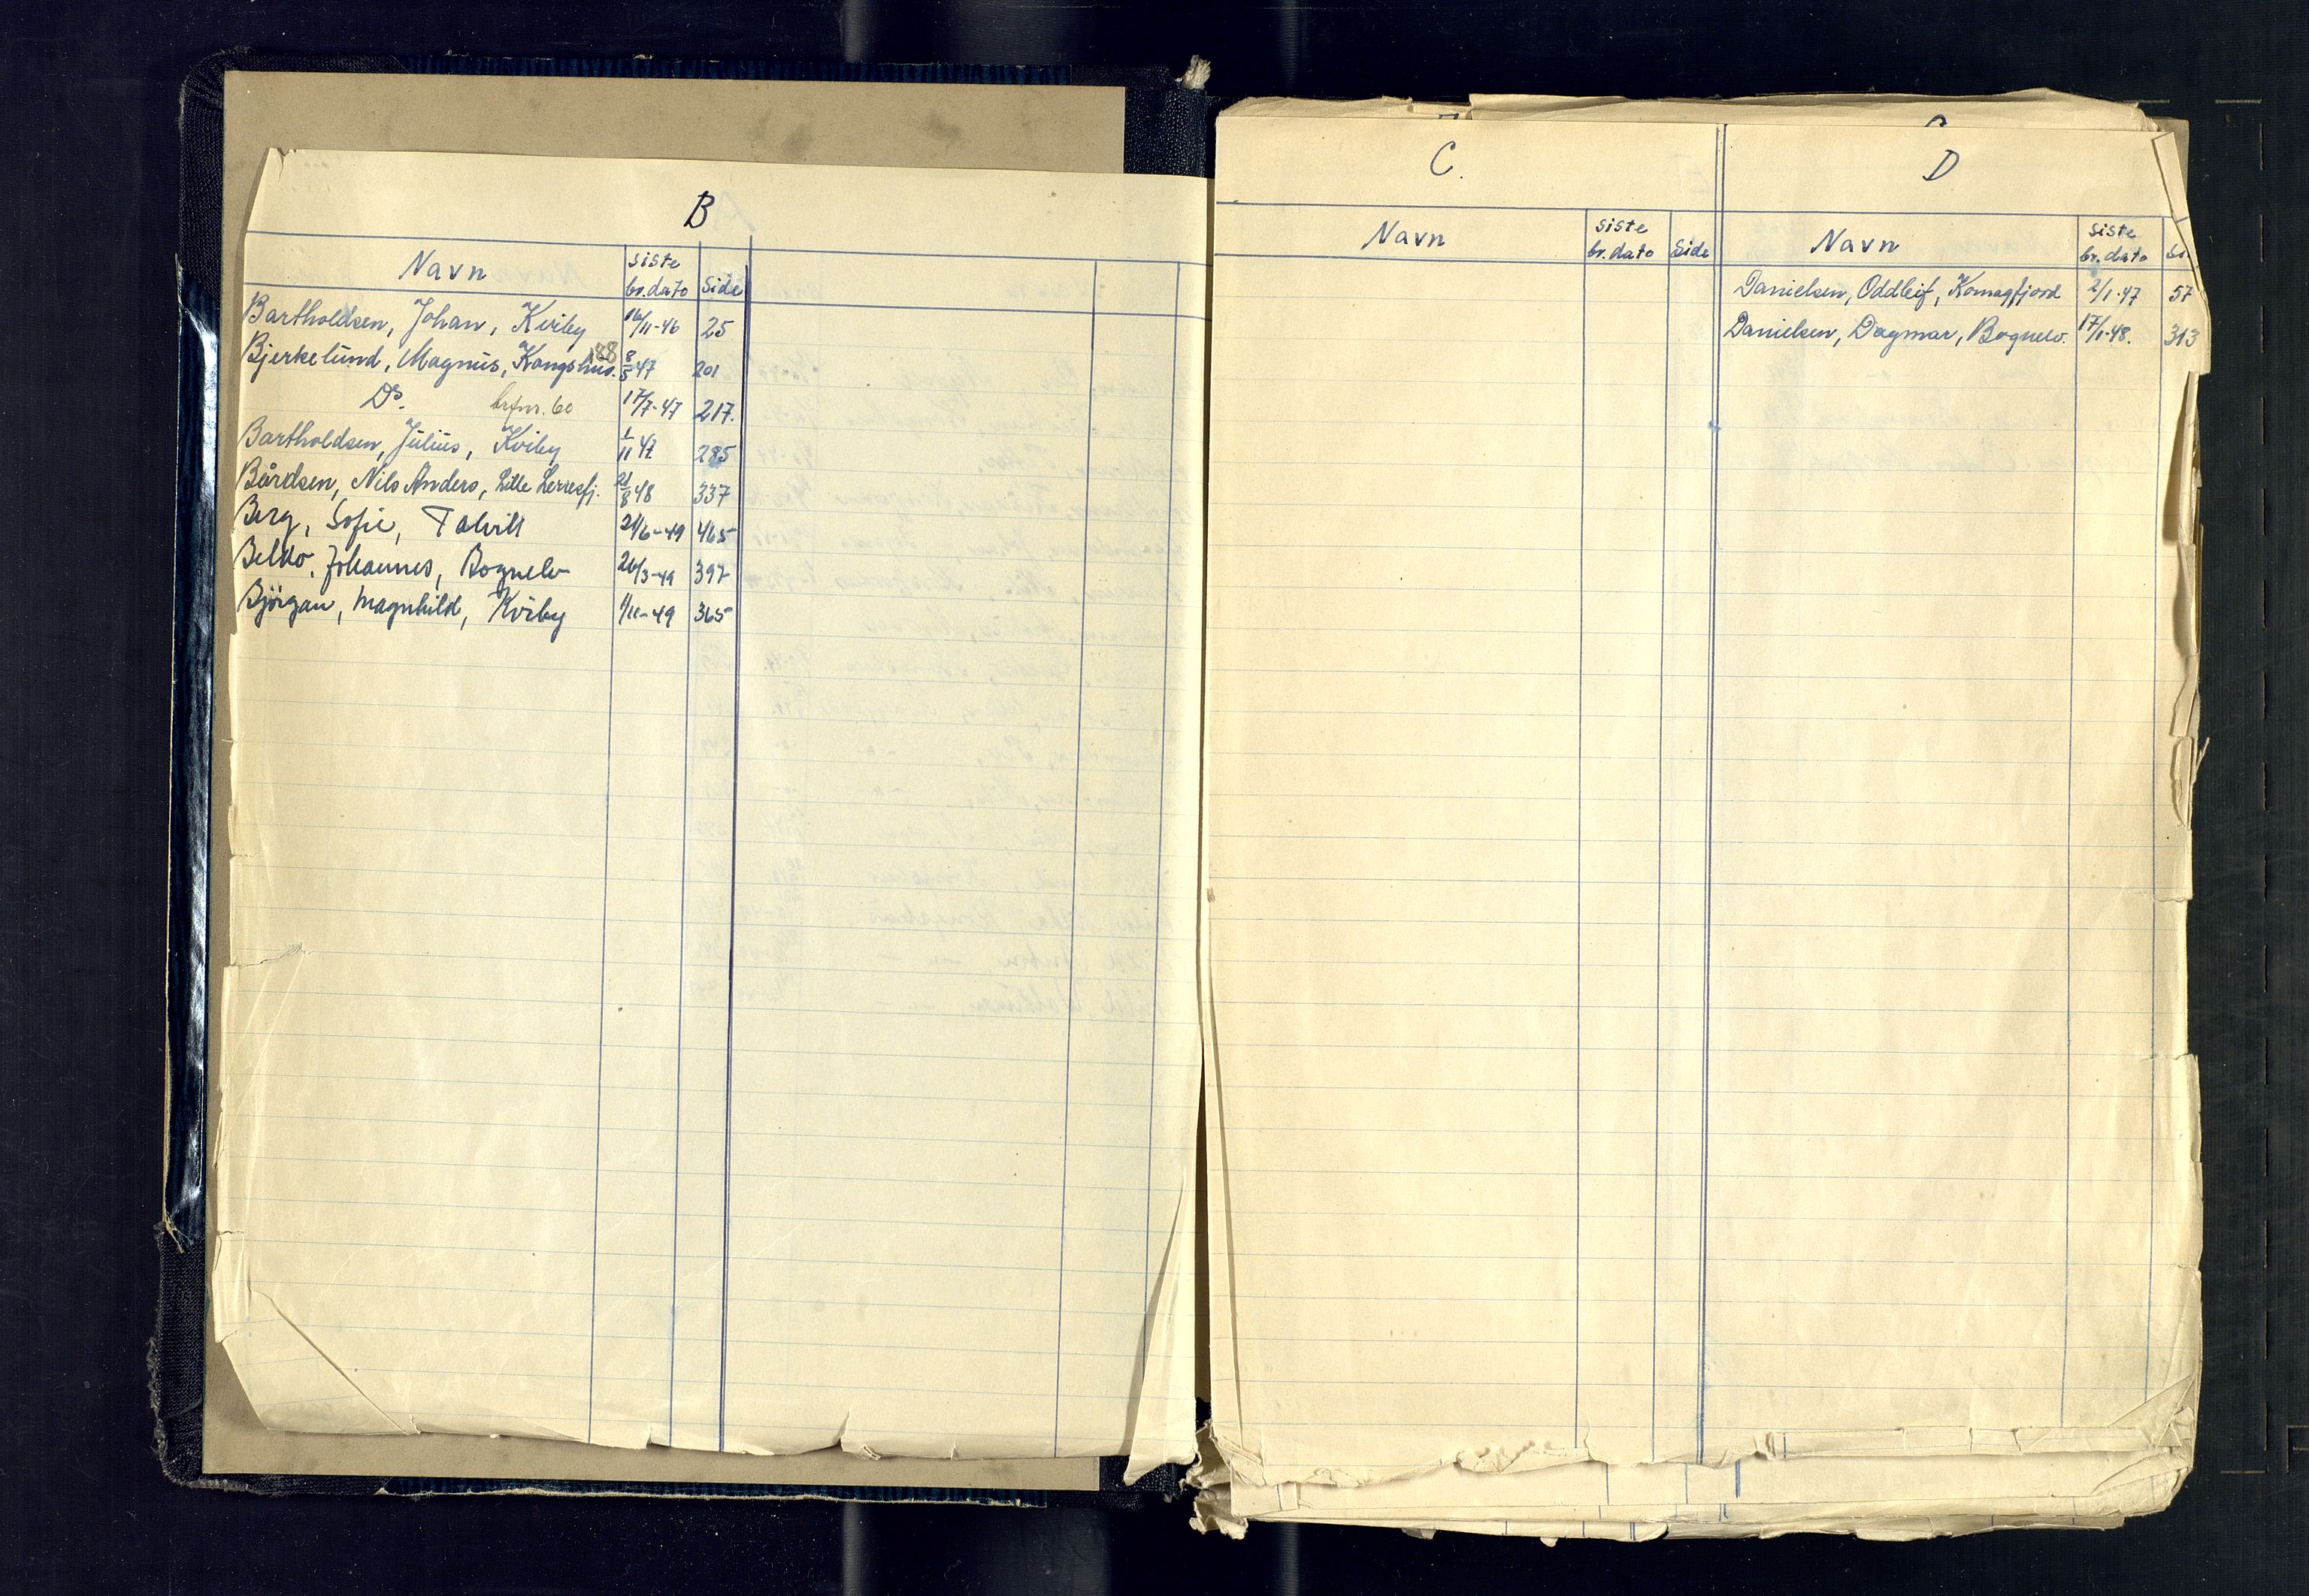 B
Navn siste br.dato Side
Bartholdsen, Johan, Kviby 16/11-46 25
Bjerkelund, Magnus, Kongshus. 88 8/5 47 201
Do. brfnr. 60 17/7-47 217.
Bartholdsen, Julius, Kviby 1/11 47. 285
Bårdsen, Nils Anders, Lille Lerresfj. 21/8 48 337
Berg, Sofie, Talvik 21/6-49 465
Beldo, Johannes, Bognelv 26/3-49 397
Björgan, Magnhild, Kviby 1/11-49 365
C.
Navn siste br.dato Side
D
Navn siste br.dato Si
Danielsen, Oddleif, Komagfjord 2/1-47 57
Danielsen, Dagmar, Bognelv. 17/1-48. 313